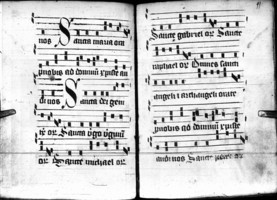 nos Sancta maria ora
pro nobis ad dominum xpiste au
di nos Sancta dei gem
ora Sancta virgo virginum
or Sancte michael or
Sancte gabriel or Sancte
raphael or Omnes sancti
angeli i archangeli orate
pro nobis ad dominum xpiste
audi nos Sancte